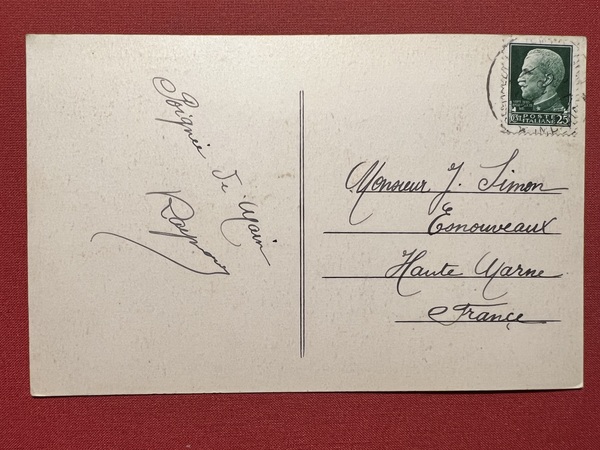 Poignée de Main
Raymond
POSTE
ITALIANE
25
Monsieur J. Simon
Esnouveaux
Haute Marne
France